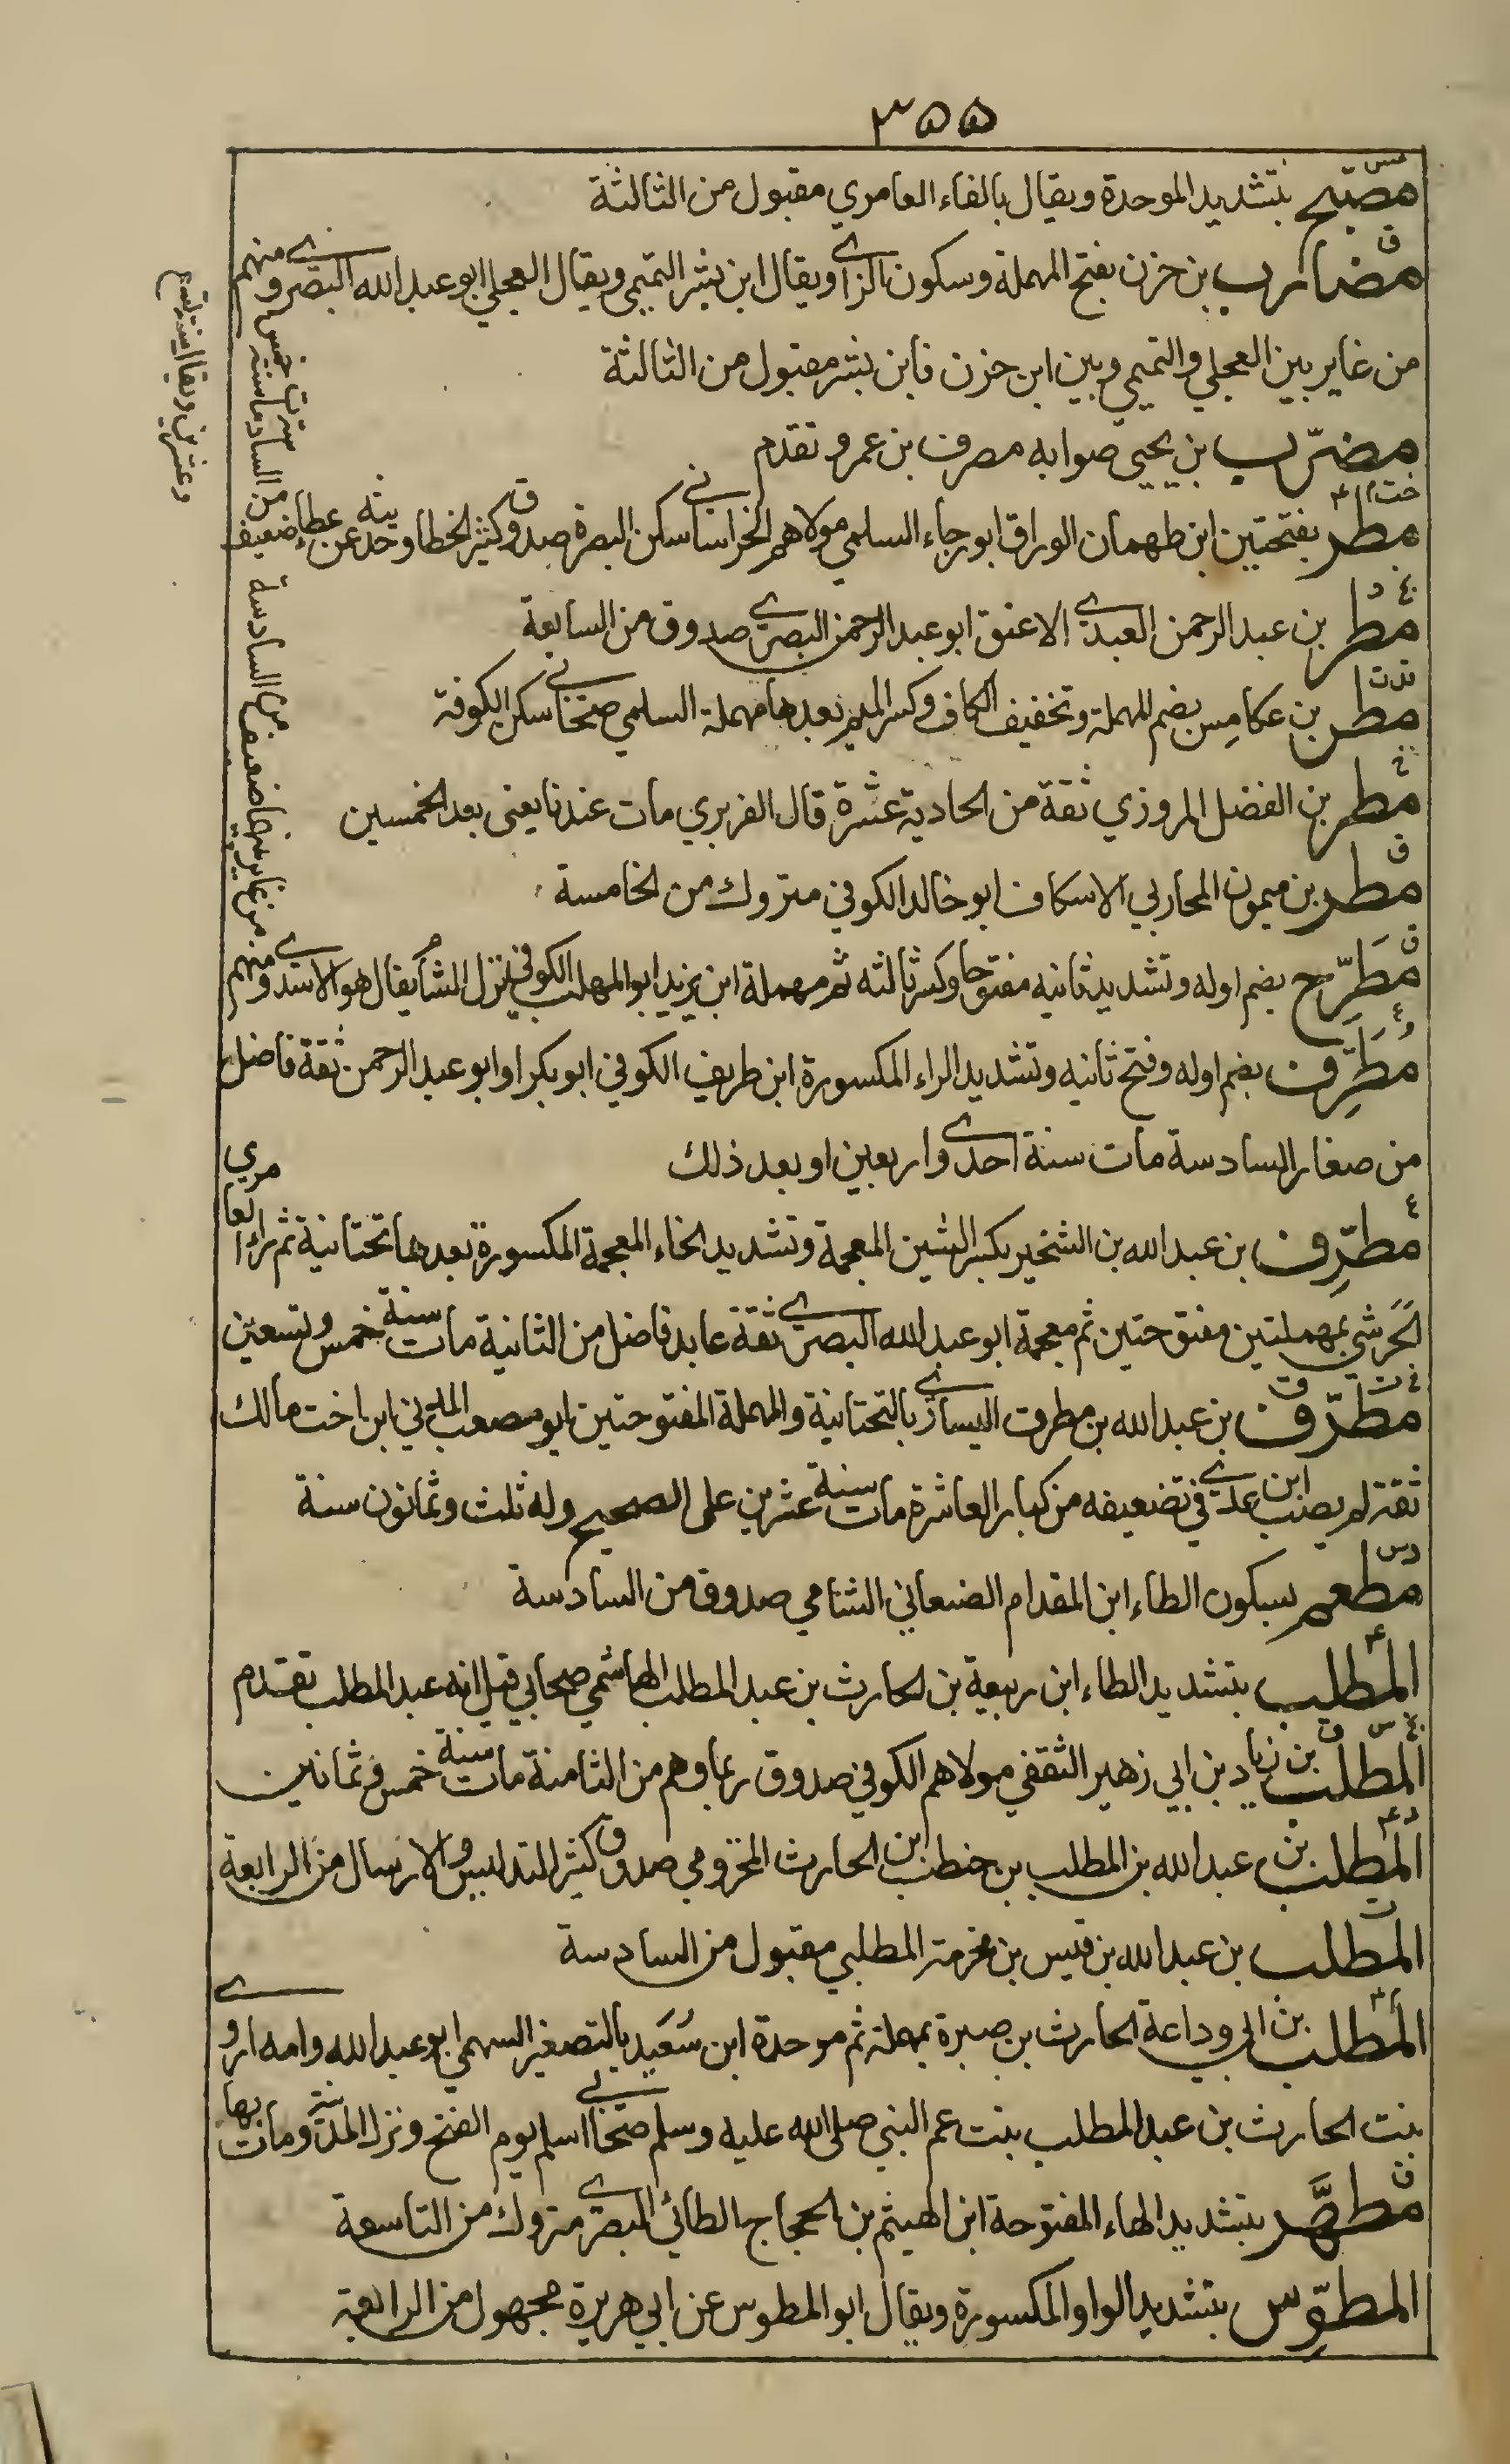 ٣٥٥
مس
مصبح بتشديد الموحدة ويقال بالفاء العامري مقبول من الثالثة
ق
مضارب بن حزن بفتح المهملة وسكون الزاي ويقال ابن بشر التميمي ويقال العجلي ابو عبد الله البصري ومنهم
من غاير بين العجلي والتميمي وبين ابن حزن فابن بشر مقبول من الثالثة
مضرّب بن يحيى صوابه مصرف بن عمرو تقدم
خت م ٤
مطر بفتحتين ابن طهمان الوراق ابو رجاء السلمي مولاهم الخراساني سكن البصرة صدوق كثير الخطا وحديثه عن عطاء ضعيف
من السادسة مات سنة خمس
وعشرين ويقال سنة تسع
بخ د
مطر بن عبد الرحمن العبدي الاعنق ابو عبد الرحمن البصري صدوق من السابعة
قد ت
مطر بن عكامِس بضم المهملة وتخفيف الكاف وكسر الميم بعدها مهملة السلمي صحابي سكن الكوفة
خ
مطر بن الفضل المروزي ثقة من الحادية عشرة قال الفربري مات عندنا يعنى بعد الخمسين
ق
مطر بن ميمون المحاربي الاسكاف ابو خالد الكوفي متروك من الخامسة
ق
مطَرِّح بضم اوله وتشديد ثانيه مفتوحا وكسر ثالثه ثم مهملة ابن يزيد ابو المهلب الكوفي نزل الشأم يقال هو الاسدي ومنهم
من غاير بينهما ضعيف من السادسة
ع
مُطَرِّف بضم اوله وفتح ثانيه وتشديد الراء المكسورة ابن طريف الكوفي ابو بكر او ابو عبد الرحمن ثقة فاضل
من صغار السادسة مات سنة احدى واربعين او بعد ذلك
ع
مطرِّف بن عبد الله بن الشخير بكسر الشين المعجمة وتشديد الخاء المعجمة المكسورة بعدها تحتانية ثم راء العامري
الحَرَشي بمهملتين مفتوحتين ثم معجمة ابو عبد الله البصري ثقة عابد فاضل من الثانية مات سنة خمس وتسعين
خ ت ق
مطرّف بن عبد الله بن مطرف اليساري بالتحتانية والمهملة المفتوحتين ابو مصعب المدني ابن اخت مالك
ثقة لم يصب ابن عدي في تضعيفه من كبار العاشرة مات سنة عشرين على الصحيح وله ثلث وثمانون سنة
د س
مطعم بسكون الطاء ابن المقدام الصنعاني الشامي صدوق من السادسة
م
المطلب بتشديد الطاء ابن ربيعة بن الحارث بن عبد المطلب الهاشمي صحابي قيل انه عبد المطلب تقدم
بخ س ق
المطلب بن زياد بن ابي زهير الثقفي مولاهم الكوفي صدوق ربما وهم من الثامنة مات سنة خمس وثمانين
ر ٤
المطلب بن عبد الله بن المطلب بن حنطب بن الحارث المخزومي صدوق كثير التدليس والارسال من الرابعة
ت
المطلب بن عبد الله بن قيس بن مخرمة المطلبي مقبول من السادسة
م ٤
المطلب بن ابي وداعة الحارث بن صبرة بمهملة ثم موحدة ابن سُعَيد بالتصغير السهمي ابو عبد الله وامه اروى
بنت الحارث بن عبد المطلب بنت عم النبي صلى الله عليه وسلم صحابي اسلم يوم الفتح ونزل المدينة ومات بها
ق
مطهَّر بتشديد الهاء المفتوحة ابن الهيثم بن الحجاج الطائي البصري متروك من التاسعة
المطوِّس بتشديد الواو المكسورة ويقال ابو المطوس عن ابي هريرة مجهول من الرابعة